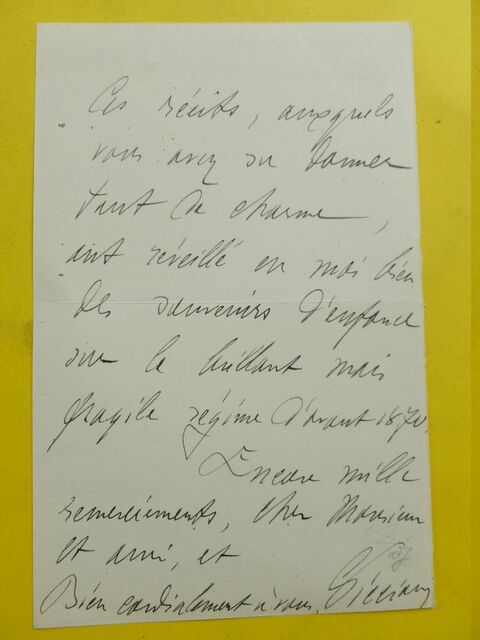 Ces récits, auxquels
vous avez su donner
tant de charme,
ont réveillé en moi bien
des souvenirs d'enfance
sur le brillant mais
fragile régime d'avant 1870.
Encore mille
remerciements, cher Monsieur
et ami, et
Bien cordialement à vous,